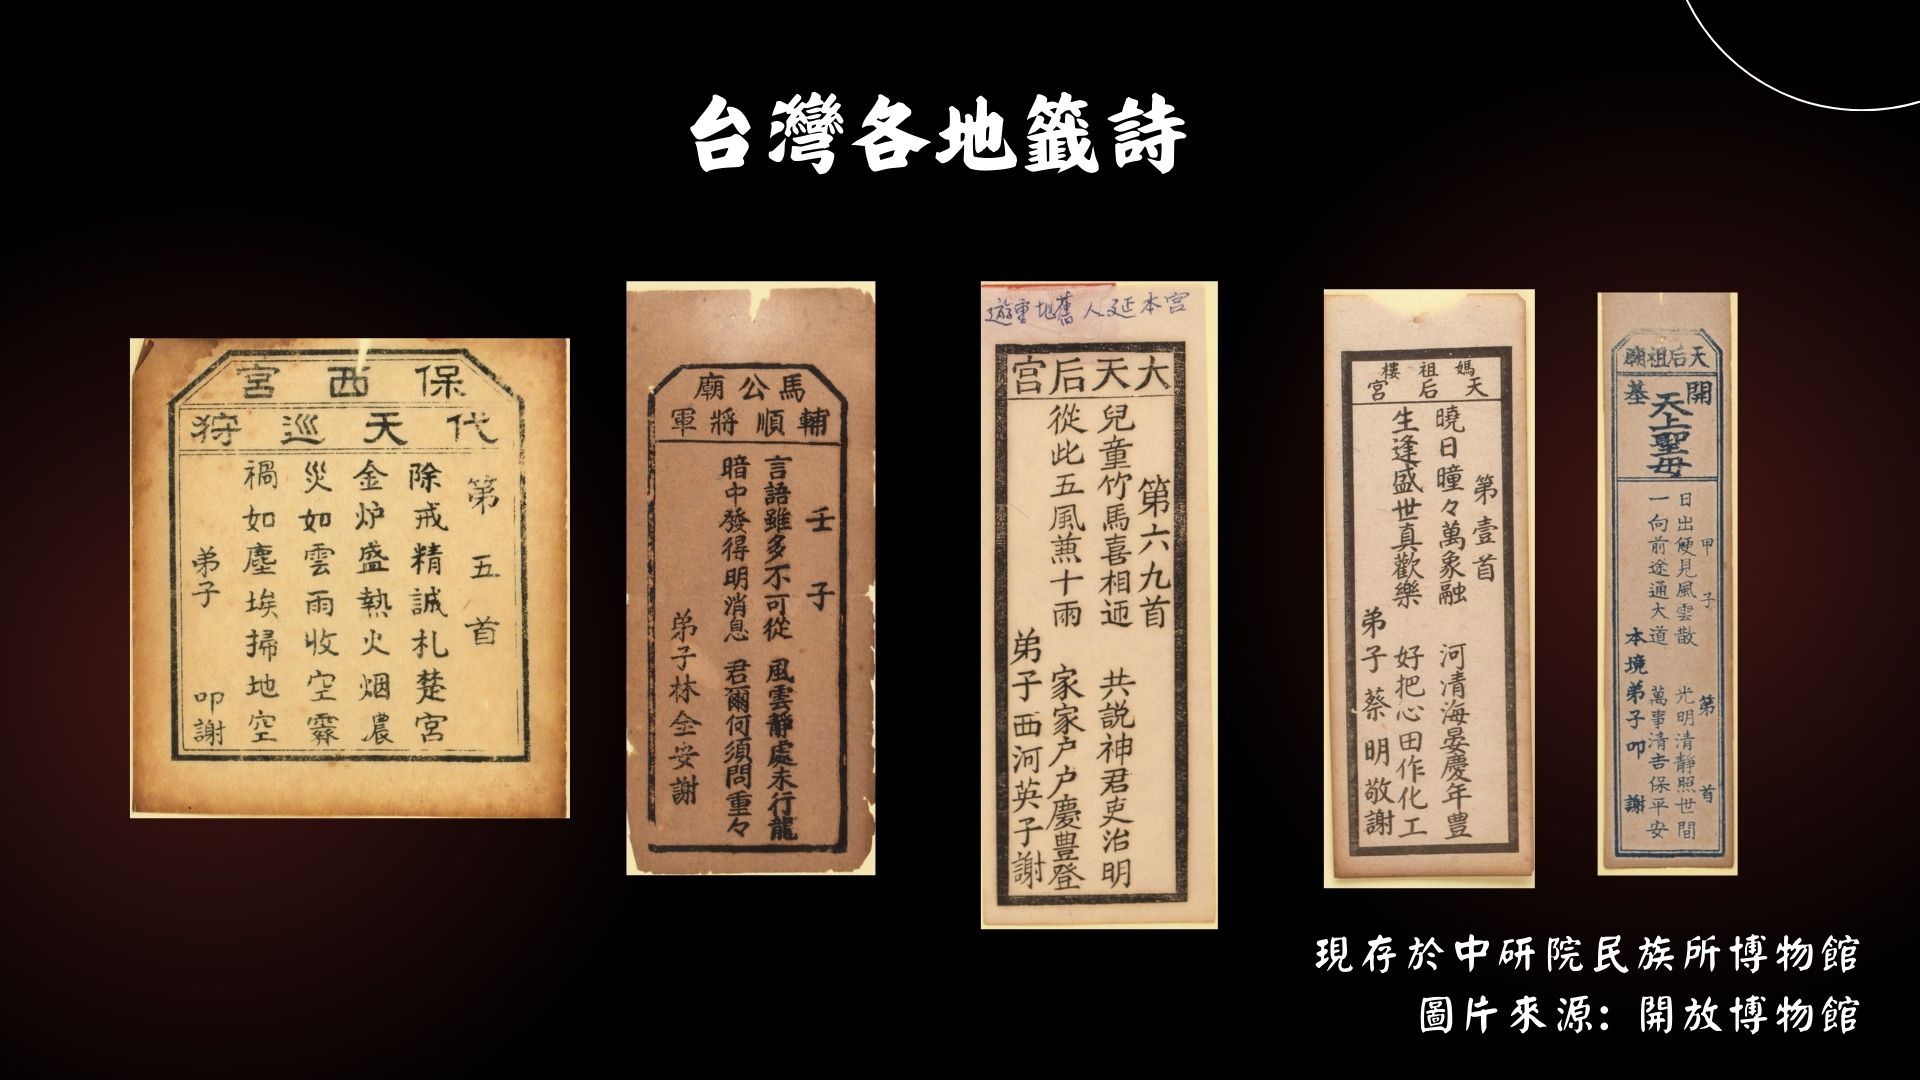 台灣各地籤詩
保西宮
代天巡狩
第五首
除戒精誠札楚宮
金炉盛熱火烟濃
災如雲雨收空霽
禍如塵埃掃地空
弟子 叩謝
馬公廟
輔順將軍
壬子
言語雖多不可從 風雲靜處未行龍
暗中發得明消息 君爾何須問重々
弟子林金安謝
遊重地舊人延本宮
大天后宮
第六九首
兒童竹馬喜相迎 共説神君吏治明
從此五風蕉十雨 家家户户慶豊登
弟子西河英子謝
媽祖樓
天后宮
第壹首
曉日瞳々萬象融 河清海晏慶年豊
生逢盛世真歡樂 好把心田作化工
弟子蔡明敬謝
天后祖廟
開基
天上聖母
甲子 第首
日出便見風雲散 光明清靜照世間
一向前途通大道 萬事清吉保平安
本境弟子叩謝
現存於中研院民族所博物館
圖片來源：開放博物館